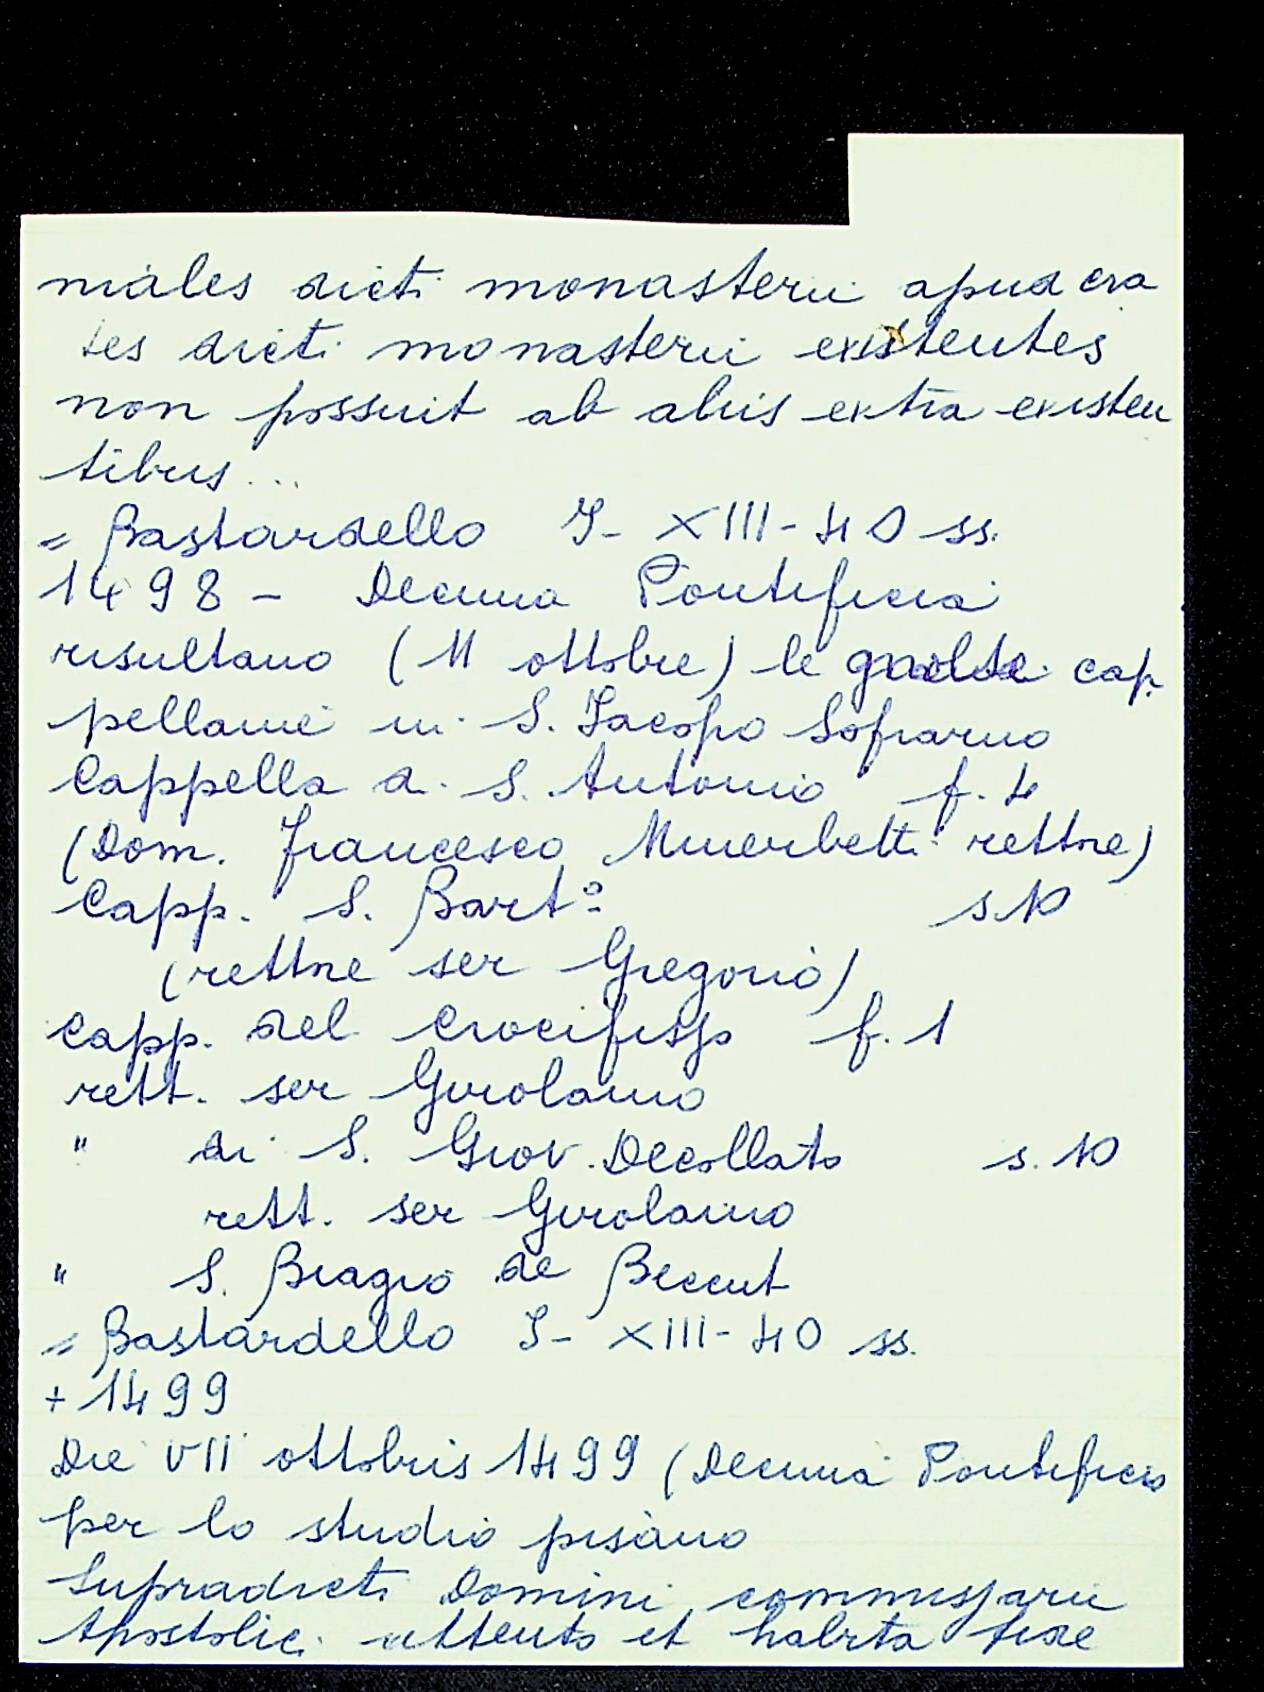 niales dicti monasterii apud cra
tes dicti monasterii existentes
non possuit ab aliis extra existen
tibus...
= Bastardello I- XIII-40 ss.
1498 - Decima Pontificia
risultano (11 ottobre) le cap-
pellanie in S. Jacopo Soprarno
Cappella di S. Antonio f. 4
(Dom. Francesco Minerbetti rettore)
Capp. S. Bartº s. 10
(rettore ser Gregorio)
Capp. del Crocifisso f. 1
rett. ser Girolamo
" di S. Giov. Decollato s. 10
rett. ser Girolamo
" S. Biagio de Beccut
= Bastardello I- XIII-40 ss.
+ 1499
Die VII ottobris 1499 (Decima Pontificia
per lo studio pisano
Supradicti Domini commissarii
Apostolici attento et habita fide